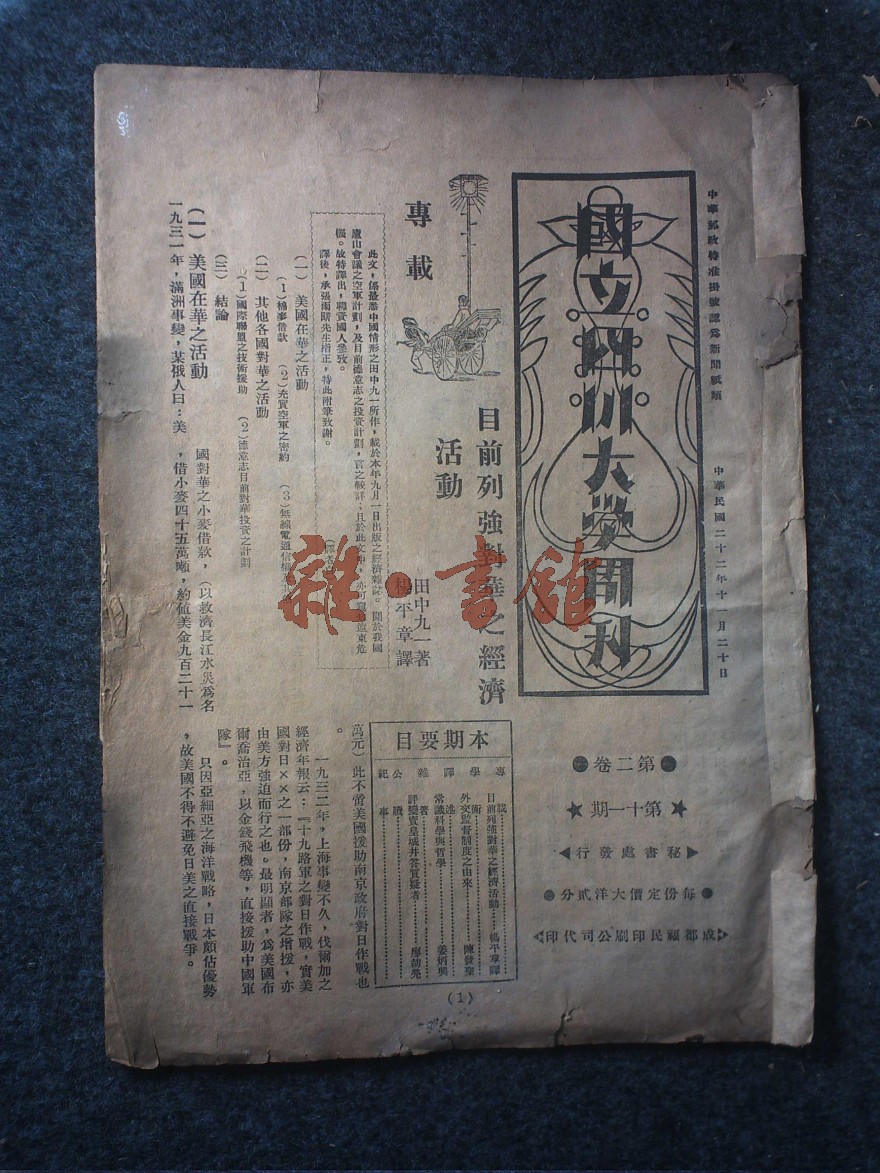 中華郵政特准掛號認爲新聞紙類
中華民國二十二年十一月二十日
國立四川大學周刊
●第二卷●
★第十一期★
◀秘書處發行▶
●每份定價大洋貳分●
成都福民印刷公司代印
專載
目前列強對華之經濟
活動
田中九一著
楊平章譯
此文，係最
中國情形之田中九一所作，載於本年九月一日出版之經濟雜誌。關於我國
廬山會議之空軍計劃，及目前德意志之投資計劃，言之較詳；且於此文中，亦可
東危
機。故特譯出，聊資國人參攷。
譯後，承張雨晴先生指正，特此附筆致謝。
（一）　美國在華之活動
（1）棉麥借款
（2）充實空軍之密約
（3）無線電通信機
（二）　其他各國對華之活動
（1）國際聯盟之技術援助
（2）德意志目前對華投資之計劃
（三）　結論
（一）　美國在華之活動
一九三一年，滿洲事變，某俄人曰：美
國對華之小麥借款，（以救濟長江水災爲名
，借小麥四十五萬噸，約値美金九百二十一
萬元）此不啻美國援助南京政府對日作戰也
。
一九三二年，上海事變不久，伐爾加之
經濟年報云：『十九路軍之對日作戰，實美
國對日××之一部份，南京部隊之增援，亦
由美方強迫而行之也。最明顯者，爲美國布
爾喬治亞，以金錢飛機等，直接援助中國軍
隊』。
只因亞細亞之海洋戰略，日本頗佔優勢
，故美國不得不避免日美之直接戰爭。
本期要目
專載
目前列強對華之經濟活動……楊平章譯
學術
外交監督制度之由來……陳發
譯述
常識科學與哲學……姜炳興
雜著
評變賣皇城并答質疑者……廖
公牘
紀事
(1)
雜·書館